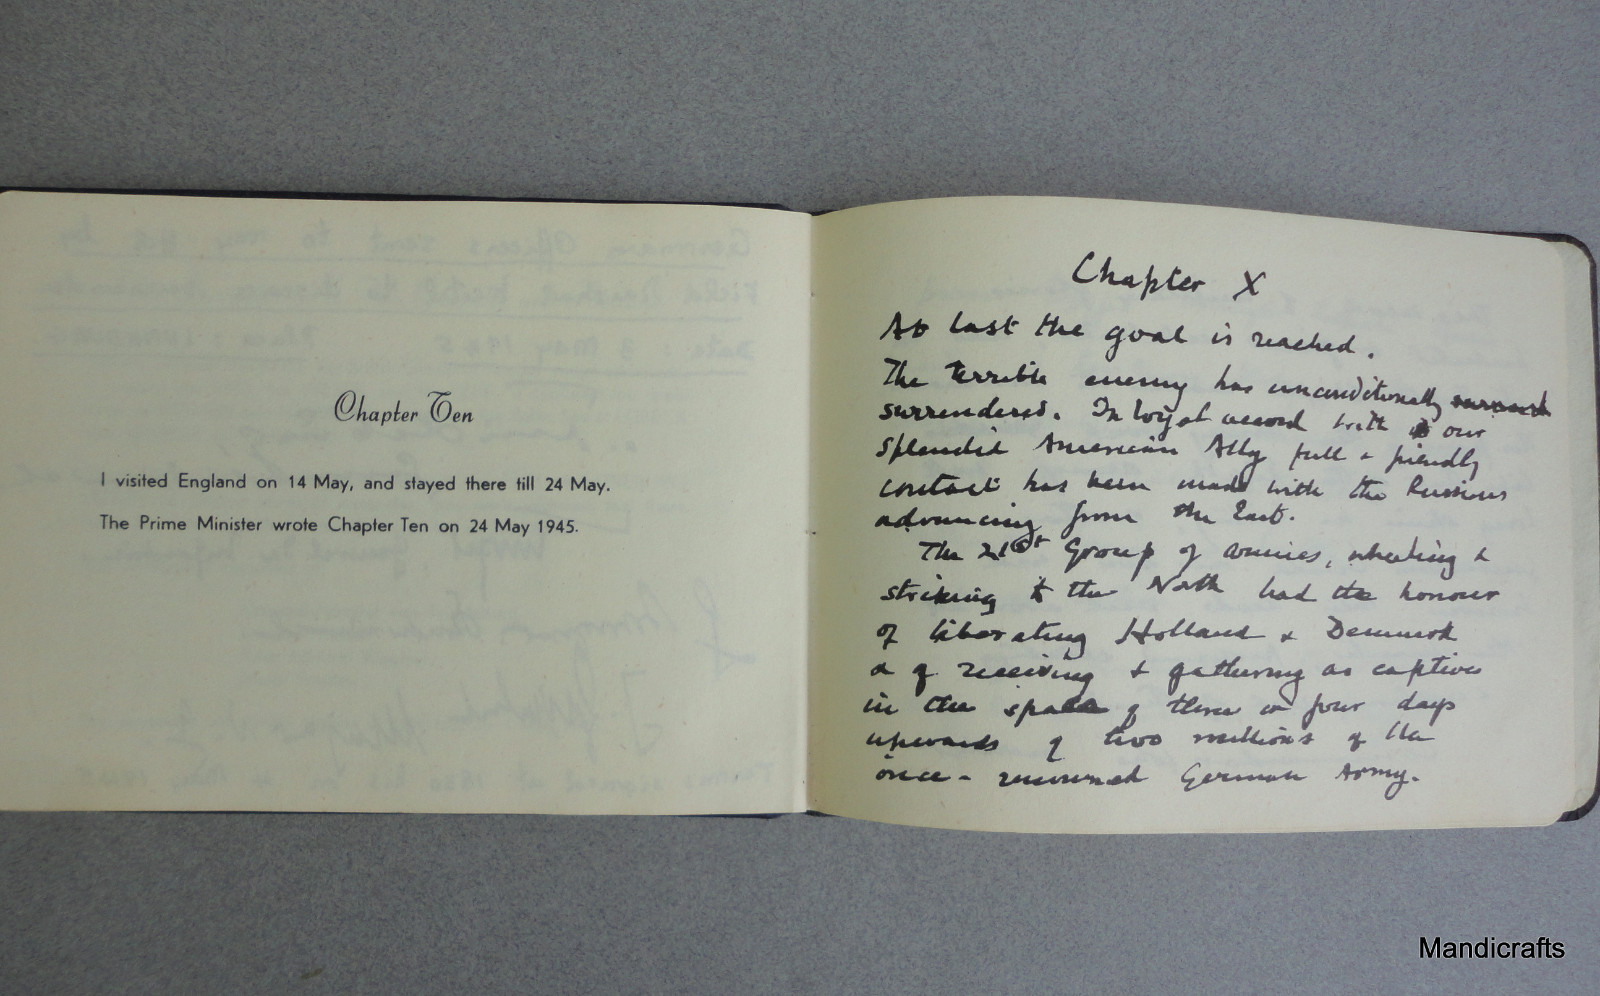 Chapter Ten
I visited England on 14 May, and stayed there till 24 May.
The Prime Minister wrote Chapter Ten on 24 May 1945.
Chapter X
At last the goal is reached.
The terrible enemy has unconditionally
surrendered. In loyal accord with our
splendid American Ally full & friendly
contact has been made with the Russians
advancing from the East.
The 21st Group of armies, wheeling &
striking to the North had the honour
of liberating Holland & Denmark
& of receiving & gathering as captives
in the space of three or four days
upwards of two millions of the
once-renowned German Army.
Mandicrafts